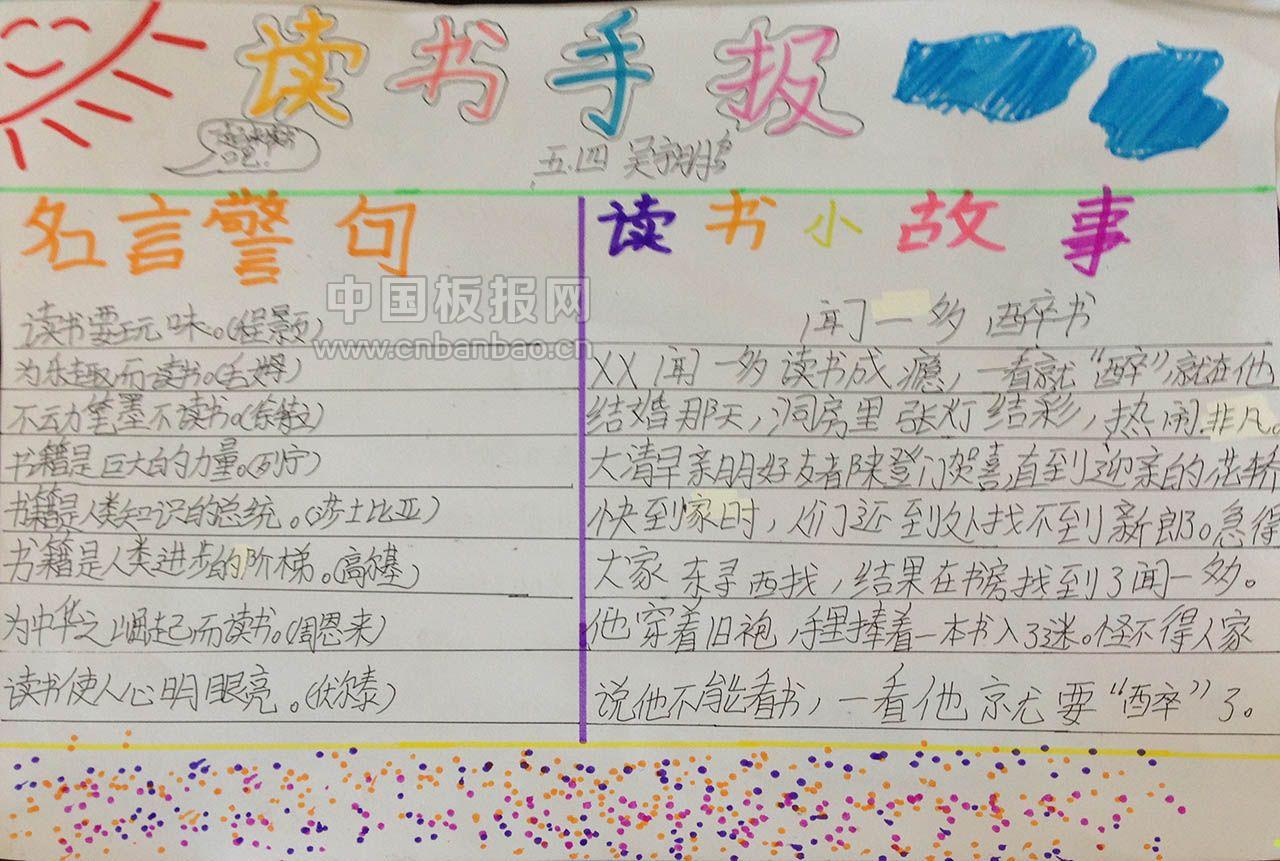 读书手报
五.四 吴
名言警句
读书要玩味。(程颢)
为乐趣而读书。(毛姆)
不动笔墨不读书。(徐特立)
书籍是巨大的力量。(列宁)
书籍是人类知识的总统。(莎士比亚)
书籍是人类进步的阶梯。(高尔基)
为中华之崛起而读书。(周恩来)
读书使人心明眼亮。(伏尔泰)
读书小故事
闻一多醉书
XX闻一多读书成瘾,一看就“醉”,就在他
结婚那天,洞房里张灯结彩,热闹非凡。
大清早亲朋好友者陕登门贺喜,直到迎亲的花轿
快到家时,人们还到处找不到新郎。急得
大家东寻西找,结果在书房找到了闻一多。
他穿着旧袍,手里捧着一本书入了迷。怪不得人家
说他不能看书,一看他就要“醉”了。
中国板报网
www.cnbanbao.cn